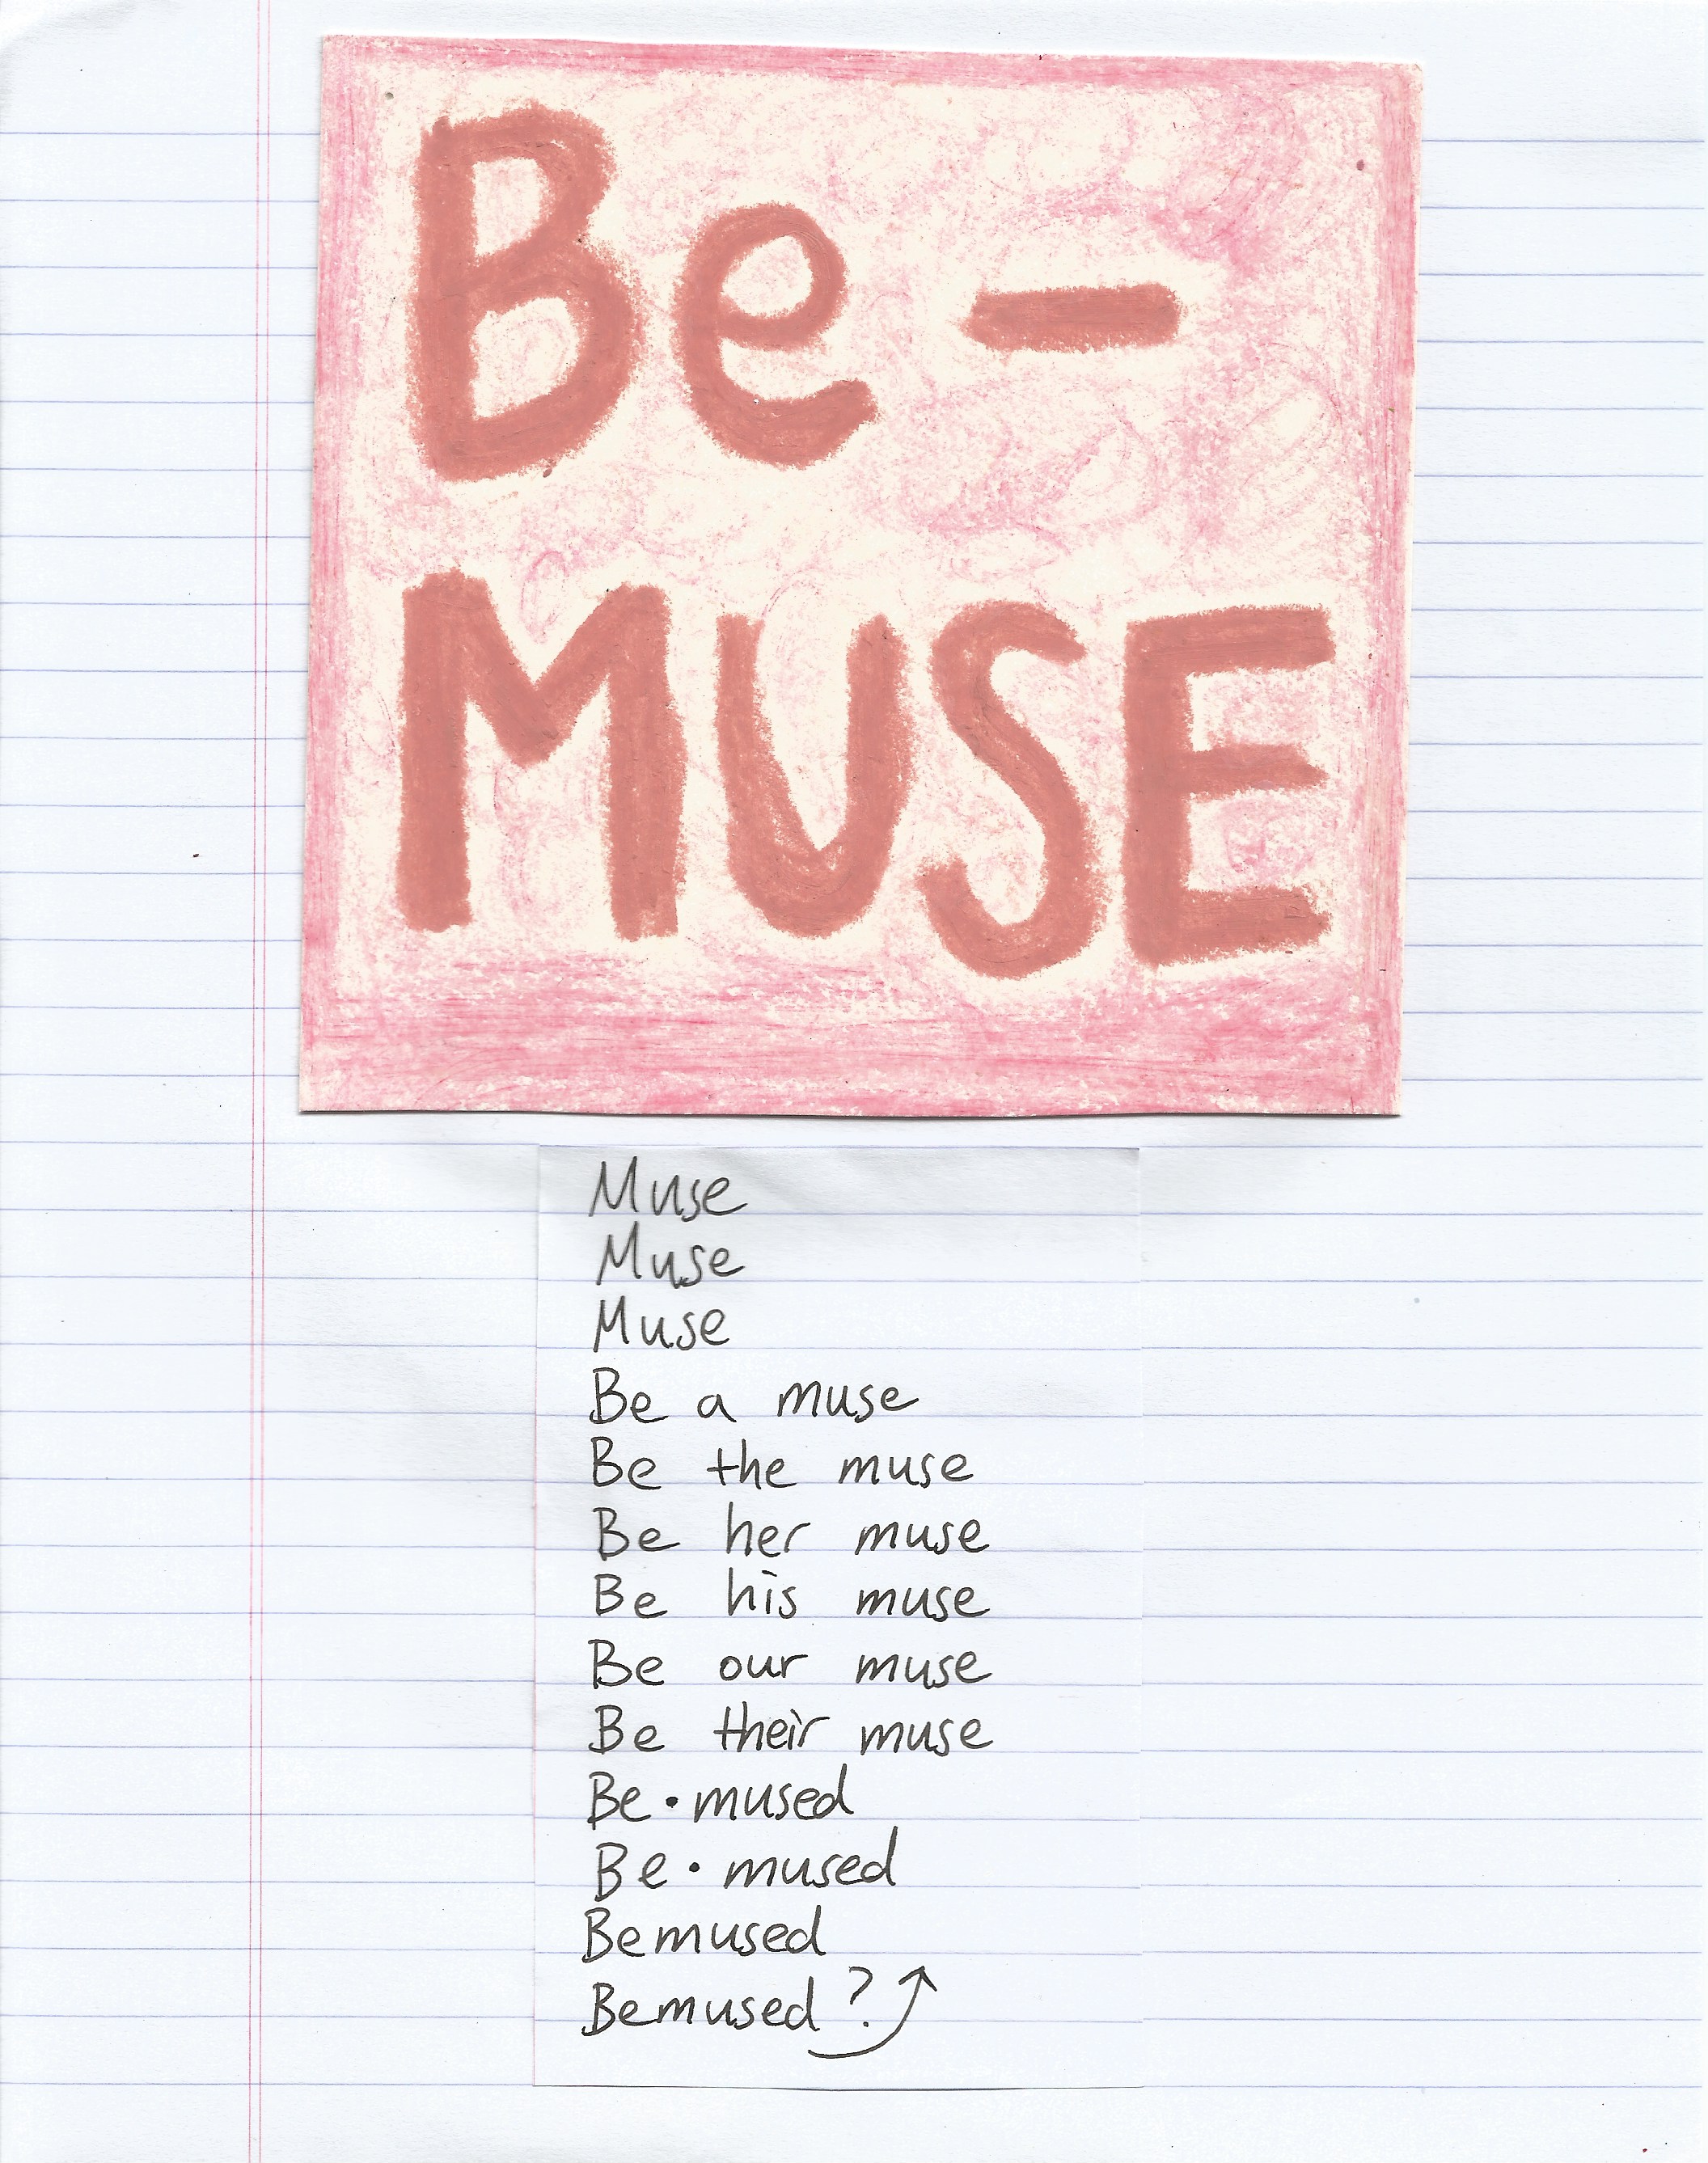 Be -
MUSE
Muse
Muse
Muse
Be a muse
Be the muse
Be her muse
Be his muse
Be our muse
Be their muse
Be • mused
Be • mused
Bemused
Bemused ?